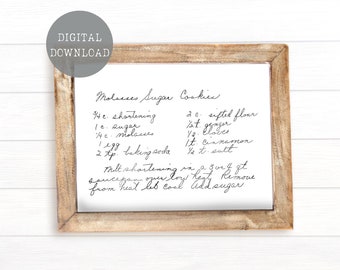 DIGITAL
DOWNLOAD
Molasses Sugar Cookies
3/4 c. shortening
1 c. sugar
1/4 c. molasses
1 egg
2 tsp. baking soda
2 c. sifted flour
1/2 t. ginger
1/2 t. cloves
1 t. cinnamon
1/2 t. salt
Melt shortening in a 3 or 4 qt
saucepan over low heat. Remove
from heat let cool Add sugar